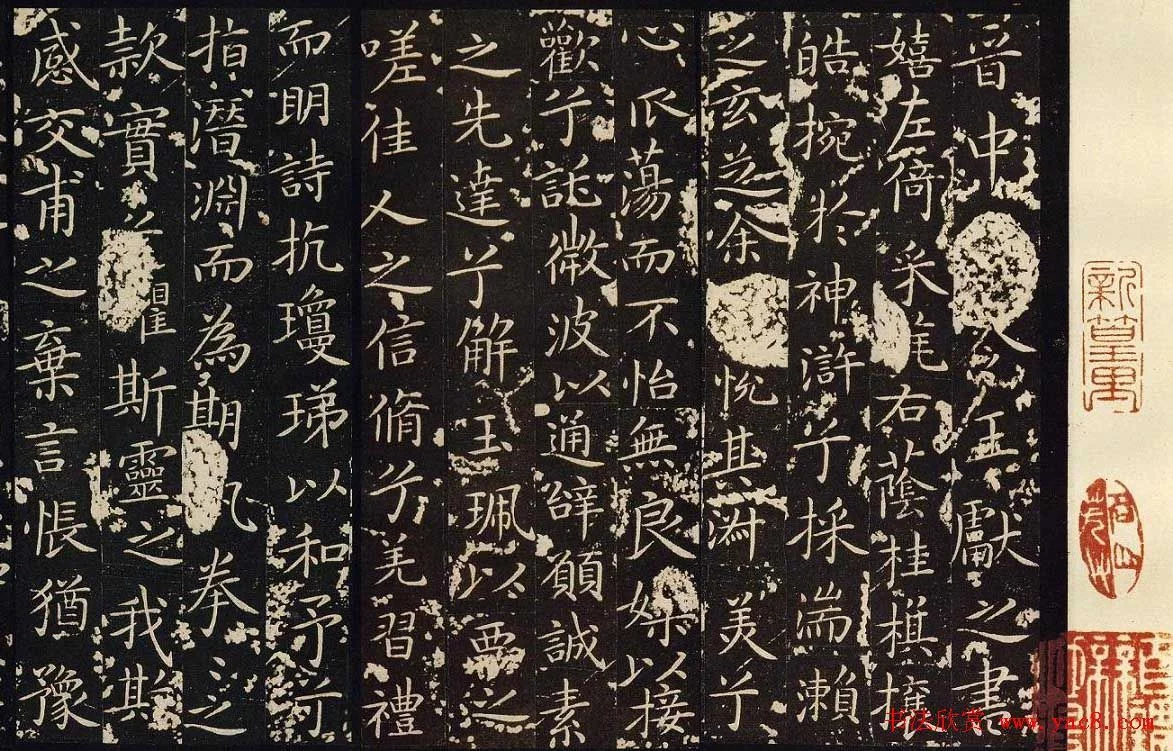 晉中令王獻之書
嬉左倚采旄右蔭桂棋攘
皓捥於神滸兮採湍瀨
之玄芝余悅其淑美兮
心蕩而不怡無良媒以接
歡兮託微波以通辭願誠素
之先達兮解玉珮以要之
嗟佳人之信脩兮羌習禮
而明詩抗瓊珶以和予兮
指潛淵而為期拳之
款實斯靈之我欺
感交甫之棄言悵猶豫
书法欣赏 www.yac8.com